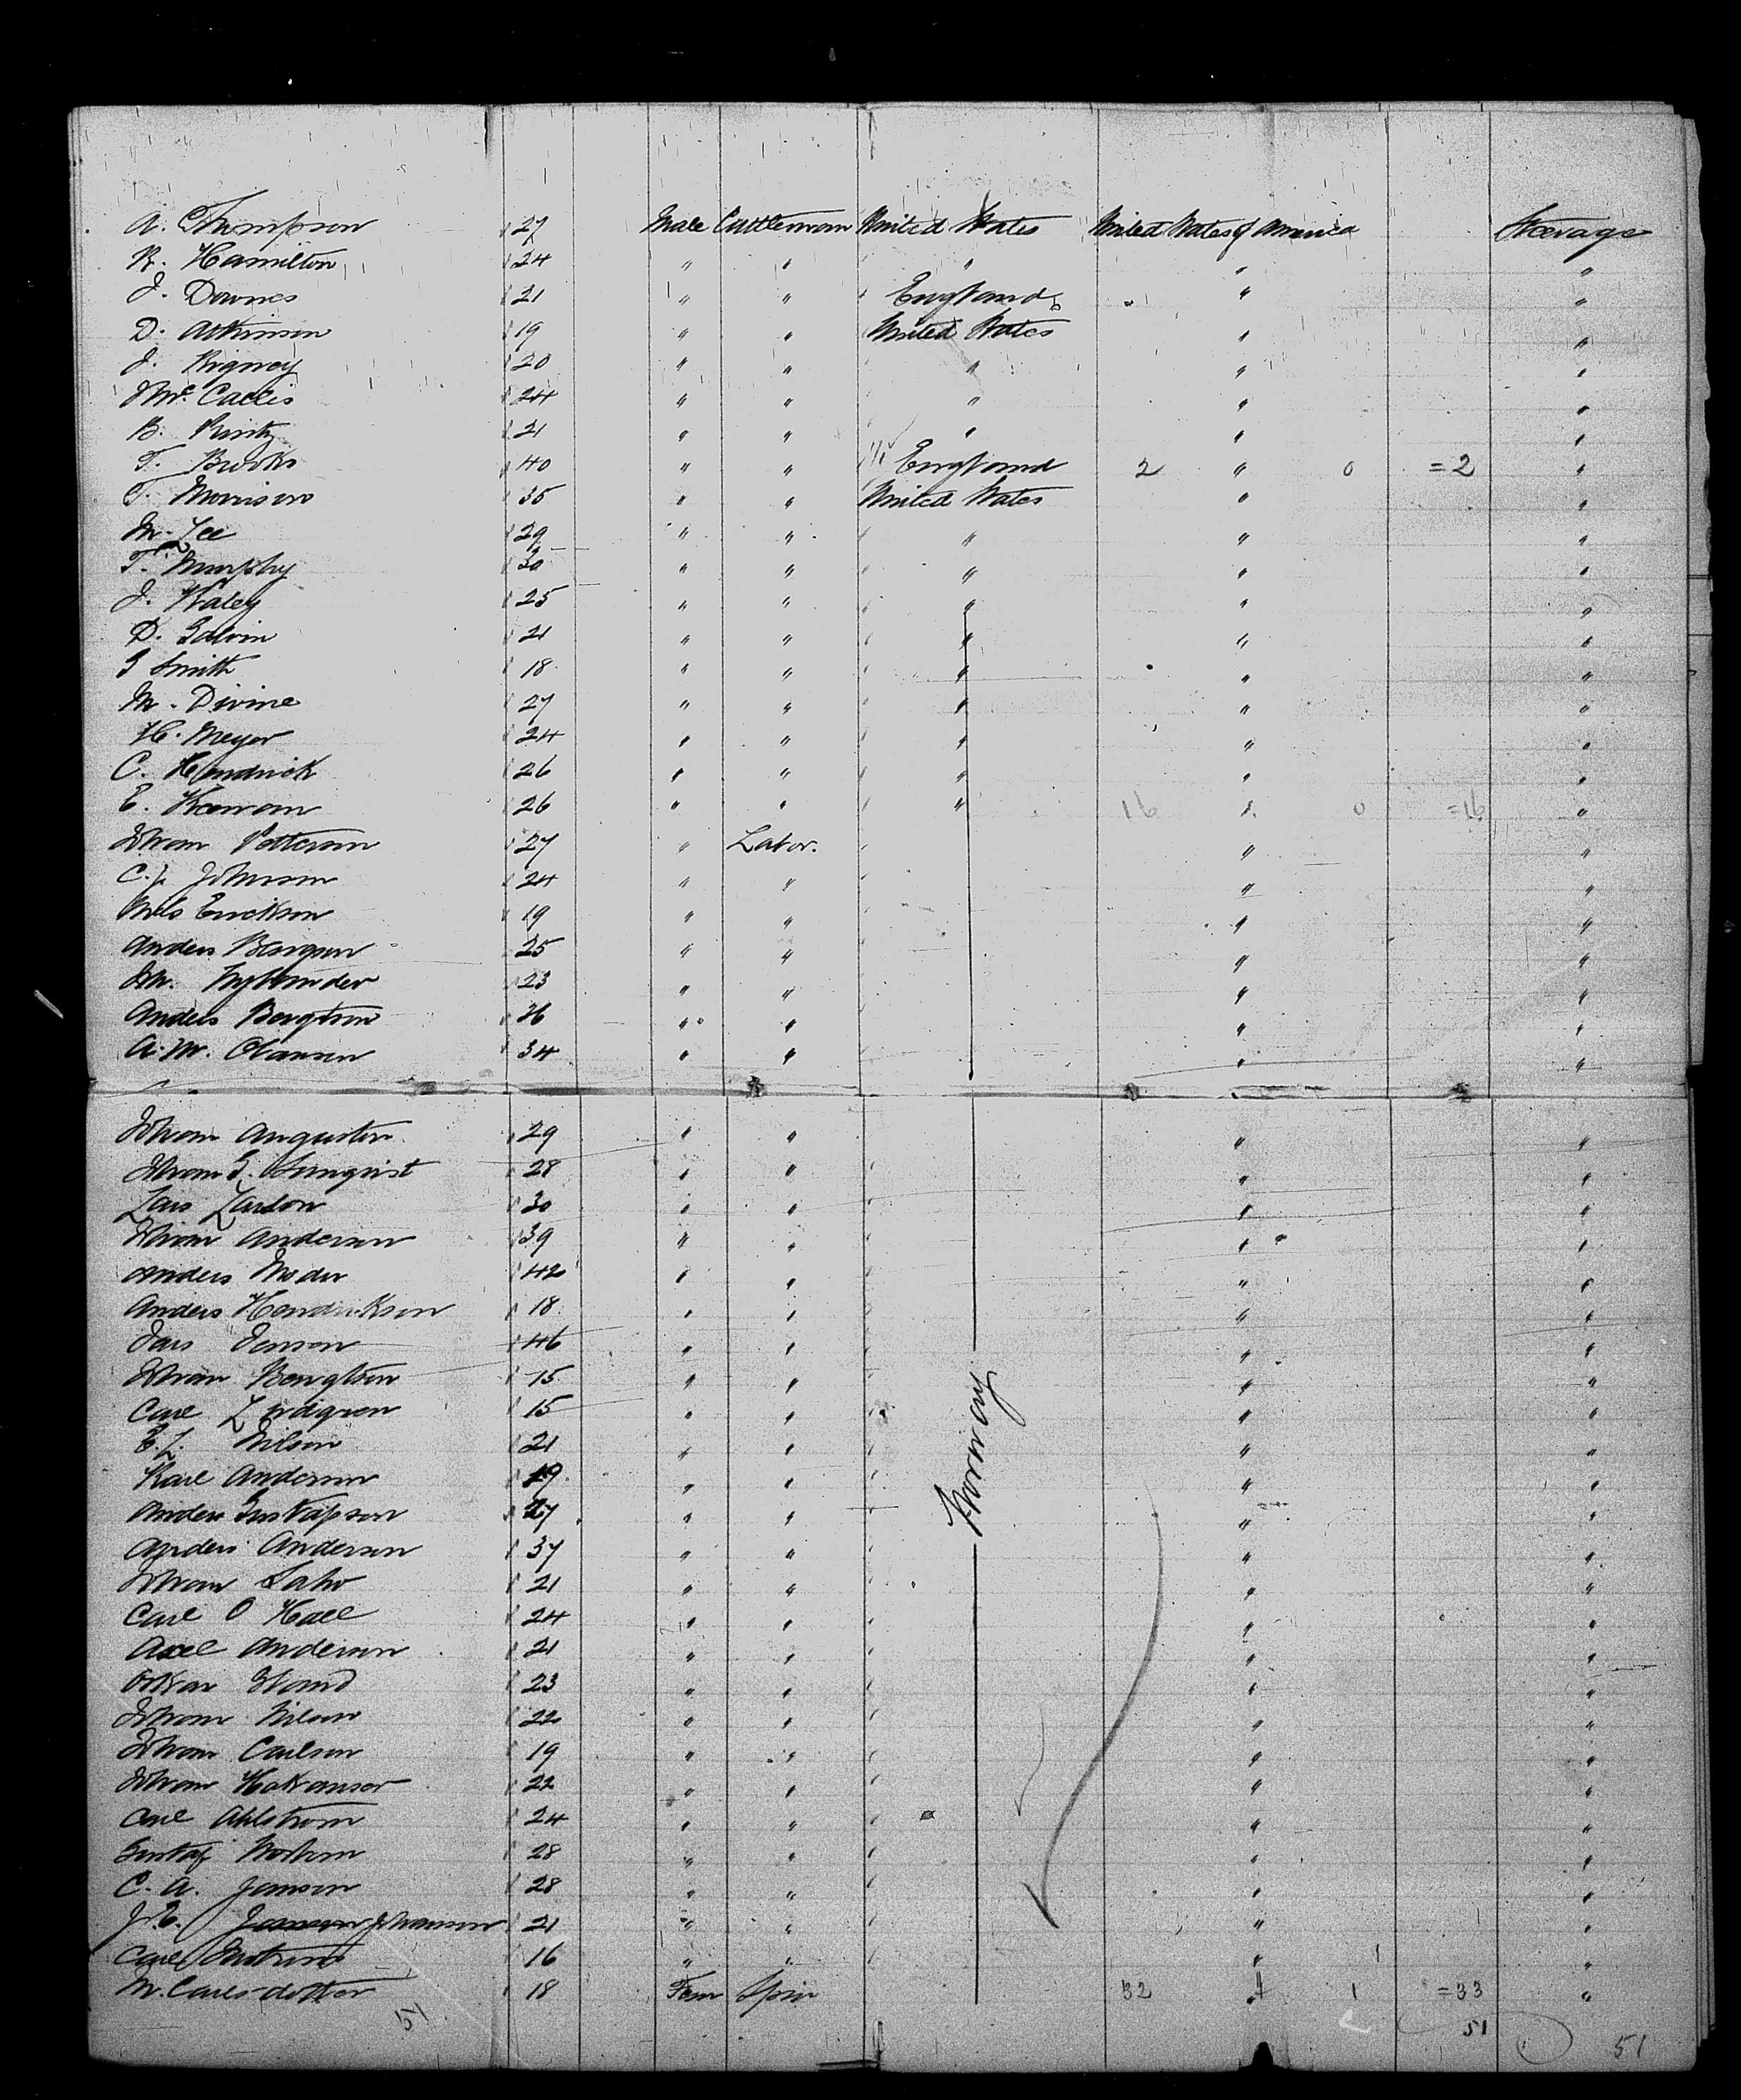 A. Thompson 27 Male Cattleman United States United States of America Steerage
R. Hamilton 24 " " " " "
J. Downes 21 " " England " "
D. Atkinson 19 " " United States " "
J. Rigney 20 " " " " "
24 " " " " "
B. 21 " " " " "
T. Brooks 40 " " England 2 " 0 =2 "
T. Morrison 35 " " United States " "
M. Lee 29 " " " " "
T. Murphy 30 " " " " "
J. Haley 25 " " " " "
D. Galvin 21 " " " " "
G Smith 18 " " " " "
M. Divine 27 " " " " "
H. Meyer 24 " " " " "
C. Hendrick 26 " " " " "
E. Keenan 26 " " " 16 " 0 =16 "
Johan Petterson 27 " Labor. " "
C. J. Johnson 24 " " " "
Nels Erickson 19 " " " "
Anders 25 " " " "
23 " " " "
Anders Bengtson 26 " " " "
A. M. Clausen 34 " " " "
Johan Anguston 29 " " " "
Johan G. 28 " " " "
Lars Larson 30 " " " "
Johan Anderson 39 " " " "
Anders 42 " " " "
Anders Hendrikson 18 " " " "
Lars Jenson 46 " " " "
Johan Bengtson 15 " " " "
Carl 15 " " " "
E. L. Nilson 21 " " " "
Karl Anderson 19 " " Norway " "
Anders Gustafson 27 " " " "
Anders Anderson 37 " " " "
Johan 21 " " " "
Carl O Hall 24 " " " "
Axel Anderson 21 " " " "
Oskar 23 " " " "
Johan Nilson 22 " " " "
Johan Carlson 19 " " " "
Johan Hakanson 22 " " " "
Carl Ahlstrom 24 " " " "
Gustaf 28 " " " "
C. A. Janson 28 " " " "
J. E. Johanson 21 " " " "
Carl 16 " " " "
M. Carlsdotter 18 Fem Spin 32 " 1 =33 "
51 51 51